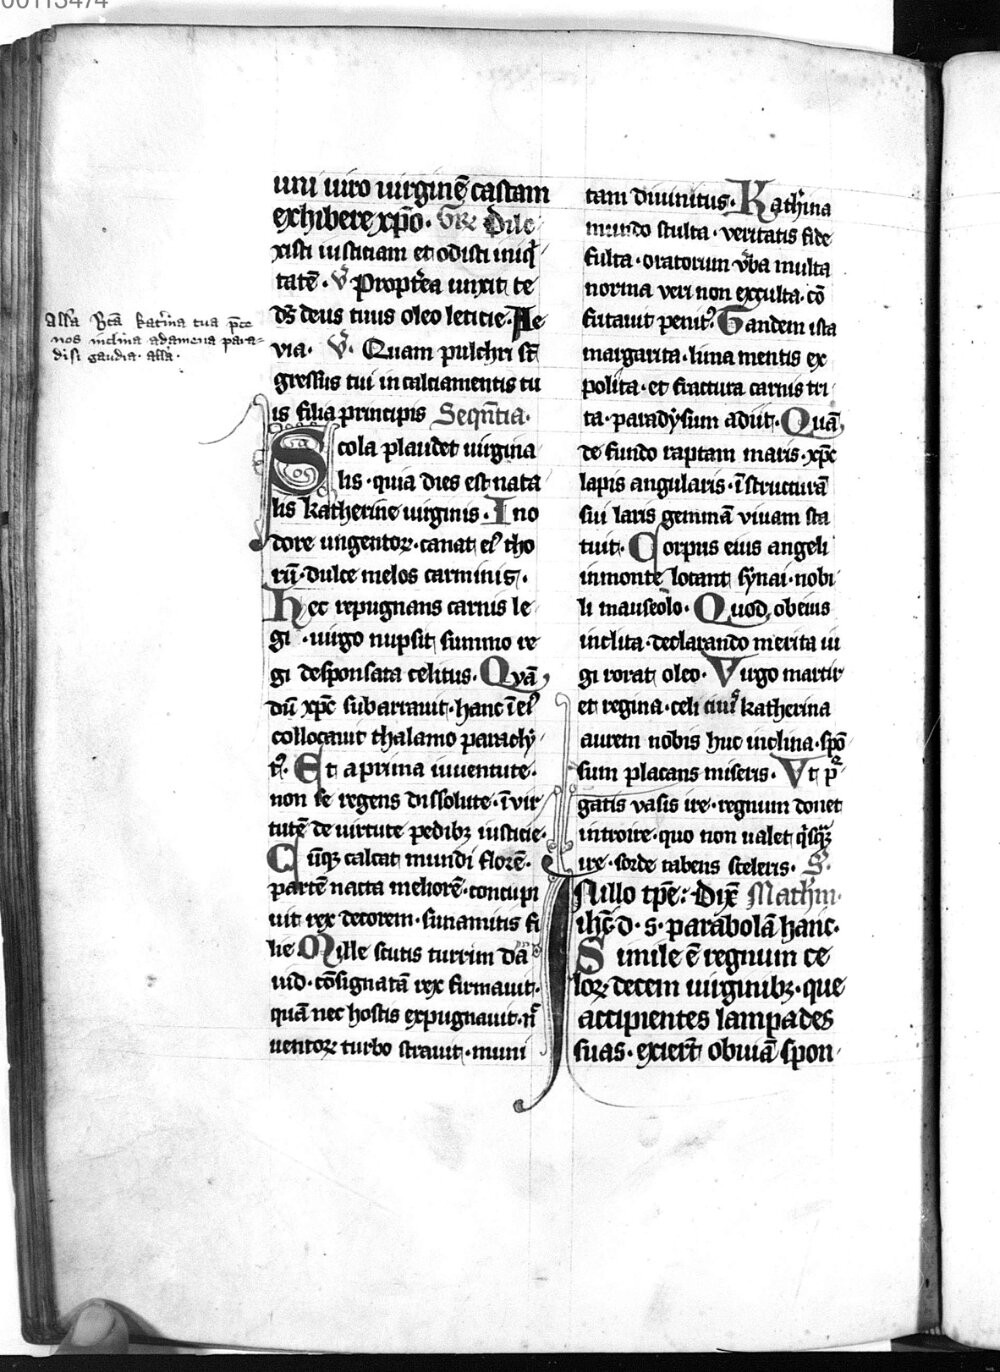 00113474
uni uiro uirginē castam
exhibere xp̄o. Gr̄. Dile
xisti iusticiam et odisti iniq̄
tatē. V̄ Propt̄ea unxit te
dn̄s deus tuus oleo leticie. Ae
via. V̄. Quam pulchri st̄
gressus tui in calciamentis tu
is filia principis Seqn̄tia.
alla Bt̄a kat'ina tua p̄ce
nos inclina ad amena para-
disi gaudia. alla.
Scola plaudet uirgina
lis. quia dies est nata
lis katherine uirginis. In o
dore ungentoꝝ. canat ei' cho
rū. dulce melos carminis.
Hec repugnans carnis le
gi. uirgo nupsit summo re
gi desponsata celitus. Quā
dū xp̄c subarrauit. hanc ī ei'
collocauit thalamo paracly
t'. Et a prima iuuentute.
non se regens dissolute. ī vir
tutē de uirtute pedibꝫ iusticie.
Cūqꝫ calcat mundi florē.
partē nacta meliorē. concupi
uit rex decorem. sunamitis fi
lie Mille scutis turrim dā
uid. cōsignatā rex firmauit.
quā nec hostis expugnauit. n̄
uentoꝝ turbo strauit. muni
tam diuinitus. Kath'ina
mundo stulta. veritatis fide
fulta. oratorum v̄ba multa
norma veri non exculta. cō
futauit penit'. Tandem ista
margarita. lima mentis ex
polita. et fractura carnis tri
ta. paradysum adiit. Quā
de fundo raptam maris. xp̄c
lapis angularis. ī structurā
sui laris gemmā viuam sta
tuit. Corpus eius angeli
in monte locant synai. nobi
li mauseolo. Quod, ob eius
inclita. declarando merita iu
gi rorat oleo. Virgo martir
et regina. celi ciui' katherina
aurem nobis huc inclina. spō
sum placans miseris. Ut p̄
gatis vasis ire. regnum donet
introire. quo non ualet q̄sqꝫ
ire. sorde tabens sceleris. S.
In illo tp̄e: Dix̄ Mathm.
ihc̄ d. s. parabolā hanc.
Simile ē regnum ce
loꝝ decem uirginibꝫ. que
accipientes lampades
suas. exier̄t obuiā spon